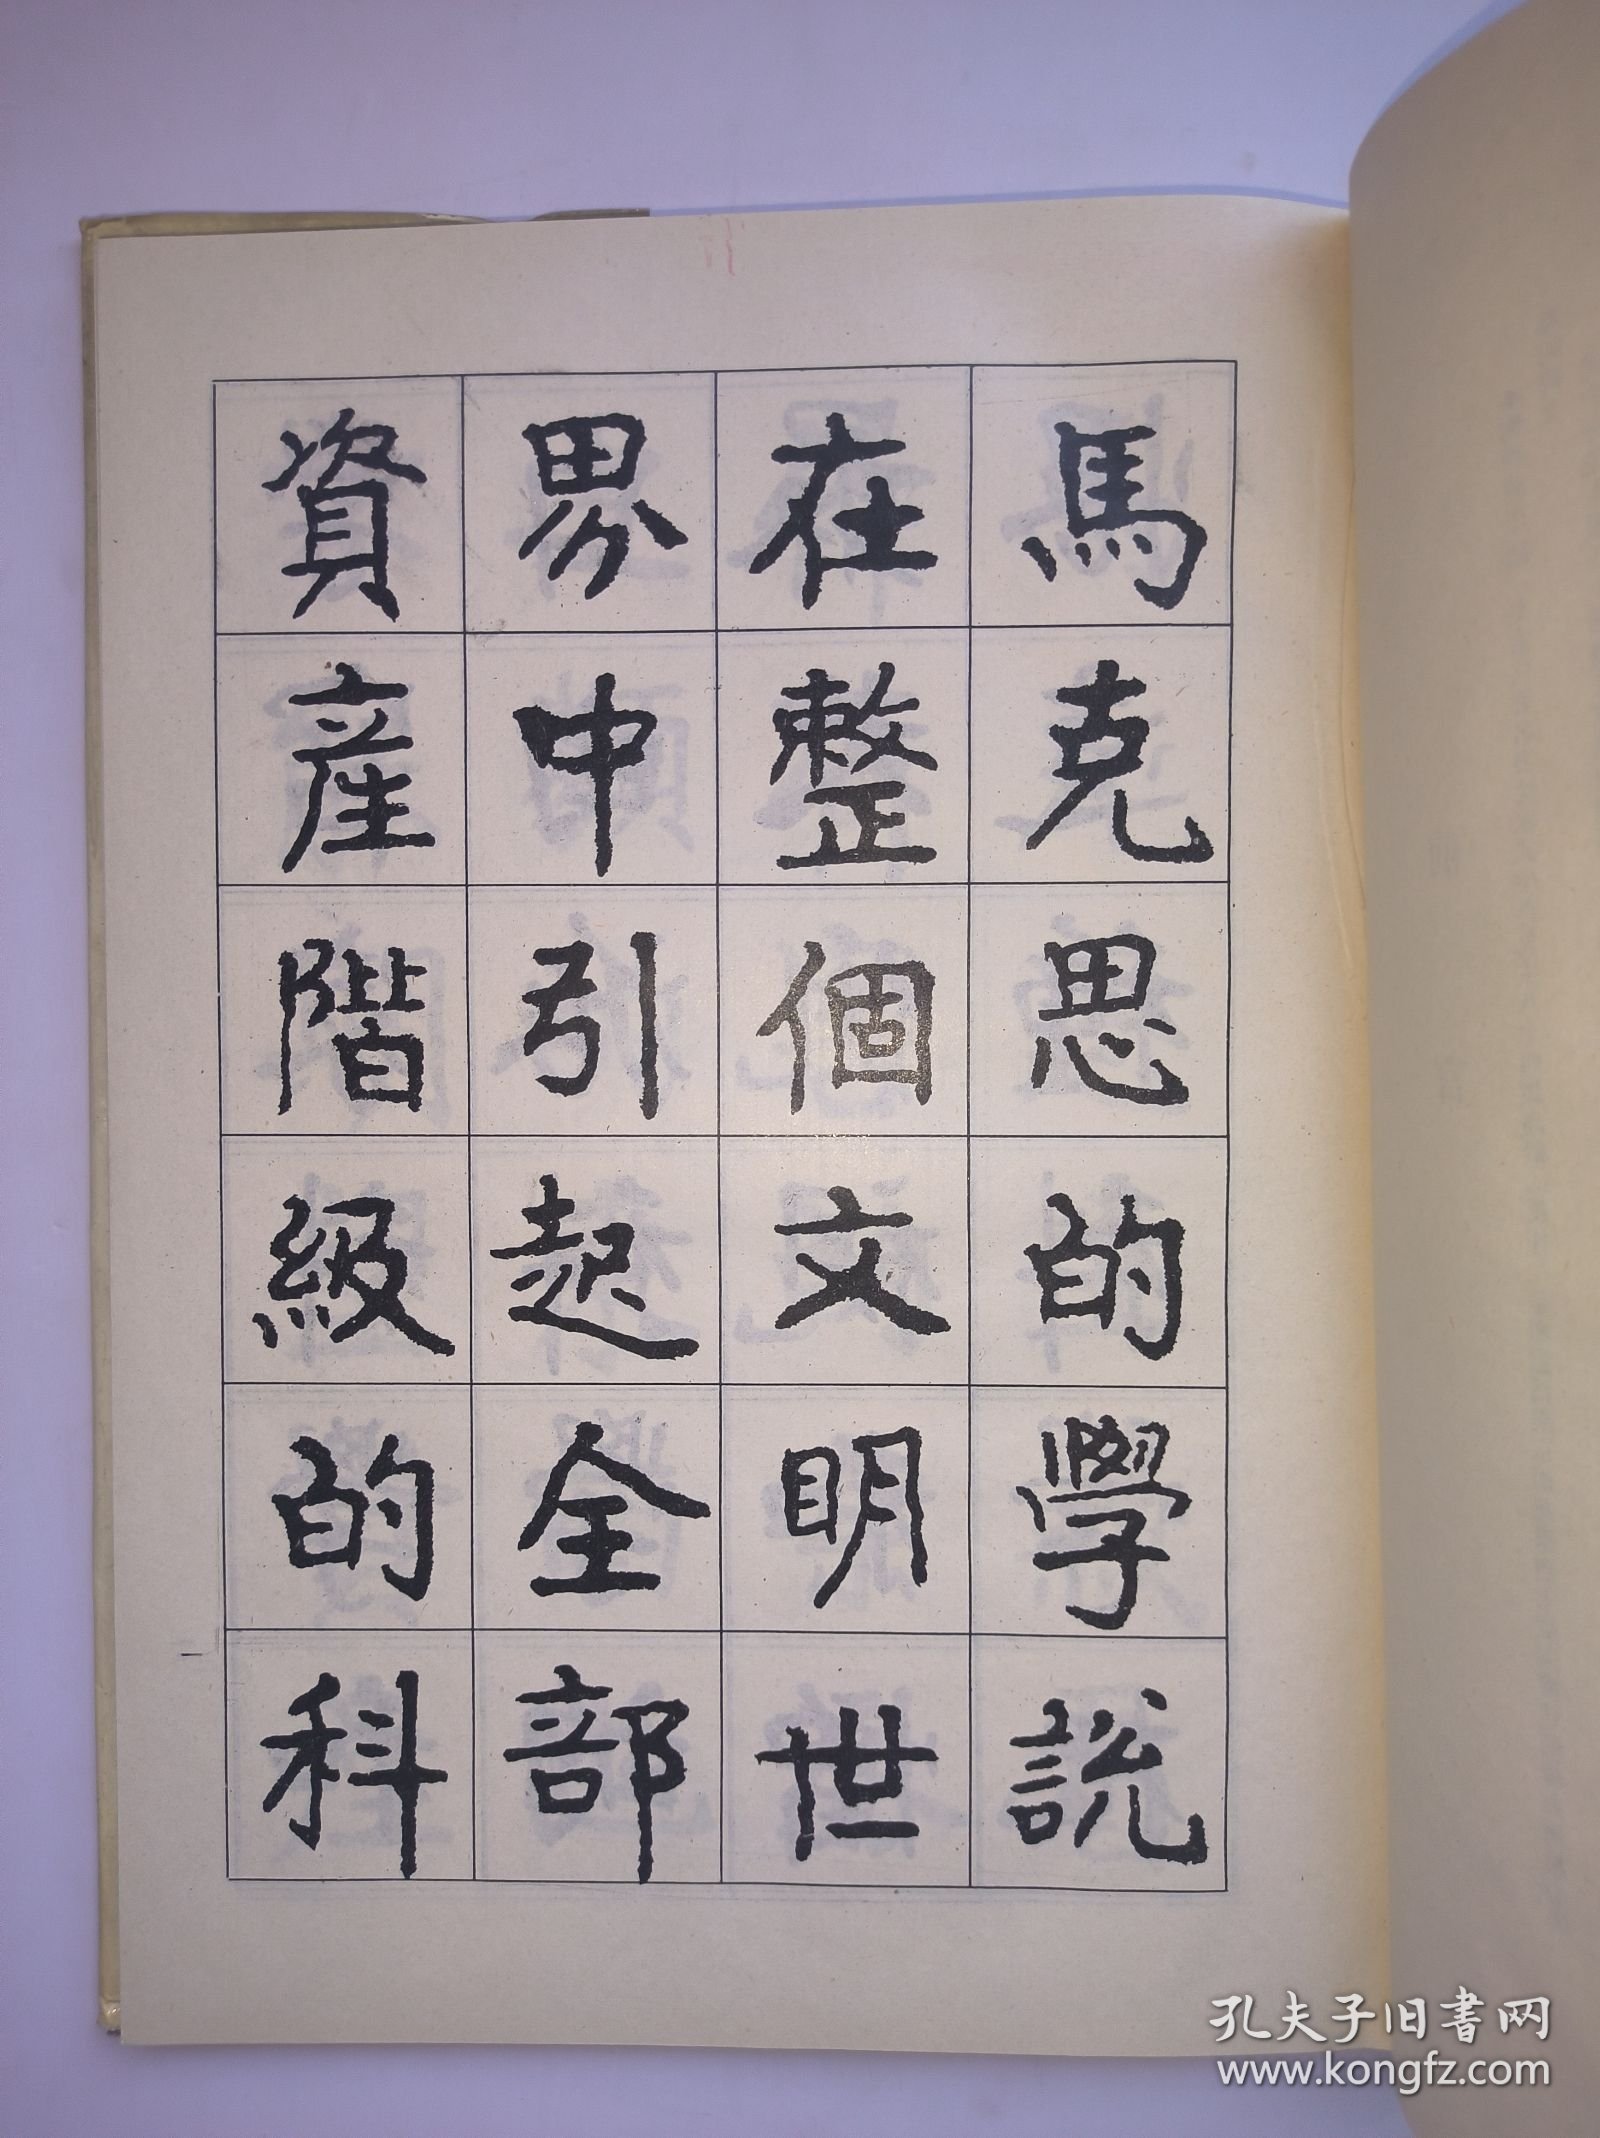 馬克思的學説
在整個文明世
界中引起全部
資産階級的科
孔夫子旧书网
www.kongfz.com